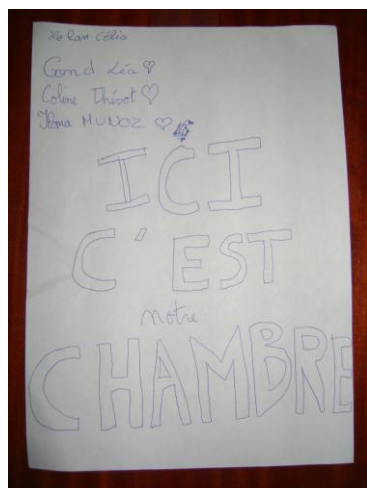 Célia
Gond Léa
Coline Thévot
MUNOZ
ICI
C'EST
notre
CHAMBRE